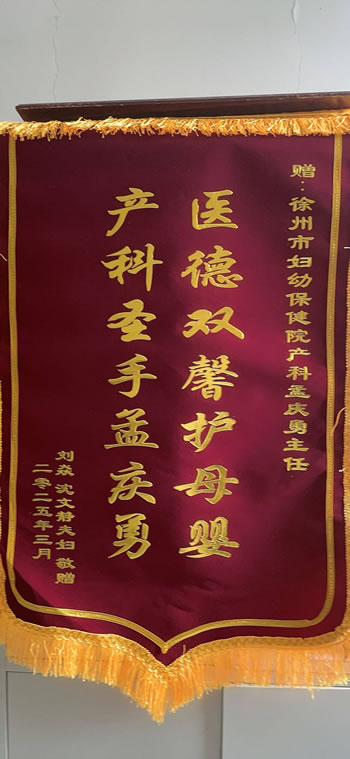 赠：徐州市妇幼保健院产科孟庆勇主任
医德双馨护母婴
产科圣手孟庆勇
刘焱 沈文静夫妇 敬赠
二零二五年三月